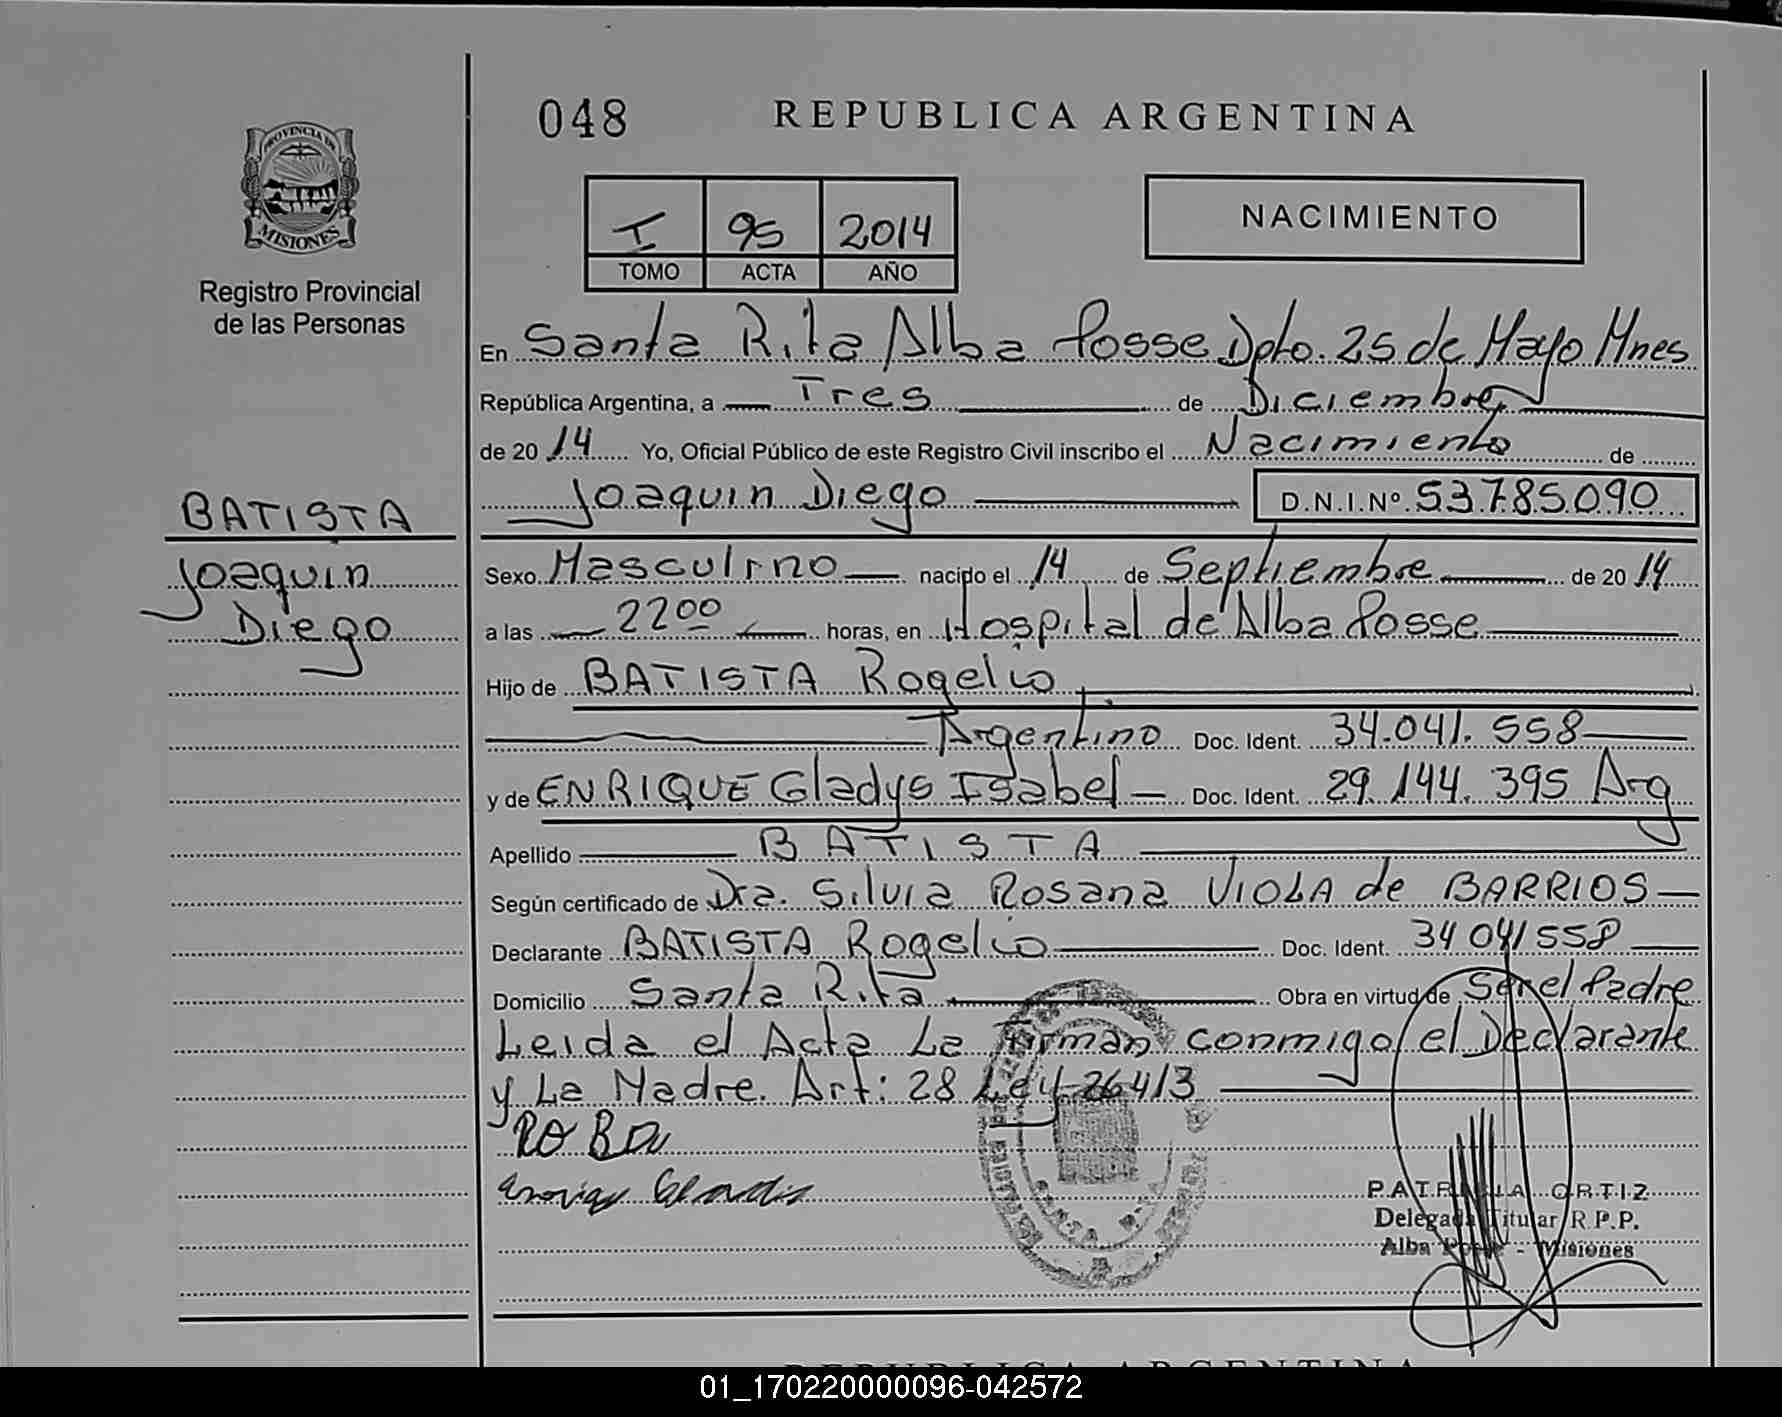 048 REPUBLICA ARGENTINA
PROVINCIA DE
MISIONES
Registro Provincial
de las Personas
I 95 2014
TOMO ACTA AÑO
NACIMIENTO
En Santa Rita Alba Posse Dpto. 25 de Mayo Mnes
República Argentina, a Tres de Diciembre
de 2014 Yo, Oficial Público de este Registro Civil inscribo el Nacimiento de
Joaquin Diego D.N.I.Nº 53785090
BATISTA
Joaquin
Diego
Sexo Masculino nacido el 14 de Septiembre de 2014
a las 22 00 horas, en Hospital de Alba Posse
Hijo de BATISTA Rogelio
Argentino Doc. Ident. 34.041.558
y de ENRIQUE Gladys Isabel Doc. Ident. 29.144.395 Arg
Apellido BATISTA
Según certificado de Dra. Silvia Rosana VIOLA de BARRIOS
Declarante BATISTA Rogelio Doc. Ident. 34041558
Domicilio Santa Rita Obra en virtud de Ser el Padre
Leida el Acta La Firman conmigo el Declarante
y La Madre. Art: 28 Ley 26413
PATRICIA ORTIZ
Delegada Titular R.P.P.
Alba Posse - Misiones
REPUBLICA ARGENTINA
01_170220000096-042572